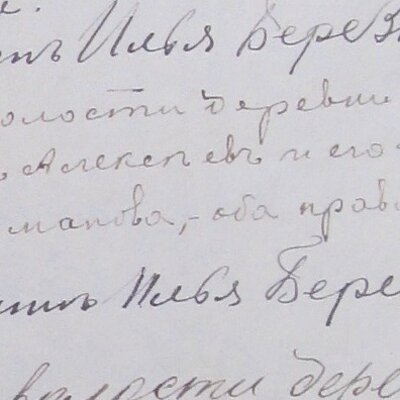 Илья Берез
волости деревни
Алексѣевъ и его
манова,- оба прав
Илья Бере
волости дере